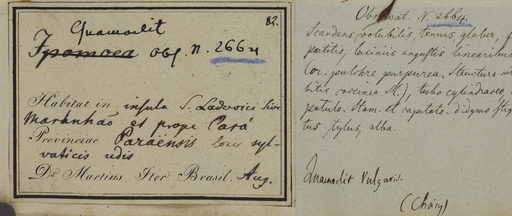 82.
Quamoclit
Ipomoea obs. n. 2664
Habitat in insula S. Ludovici sive
Maranhão et prope Pará
Provinciae Paraënsis locis syl-
vaticis udis
Dr. Martius Iter Brasil. Aug.
Observat. N. 2664.
Scandens, volubilis, tenuis, glaber,
partitis, laciniis angustis linearibus
Cor. pulchre purpurea. Structura
tubo cylindraceo
patulo. Stam. et capitato-didymo
tus stylus, alba.
Quamoclit vulgaris.
(Choisy)